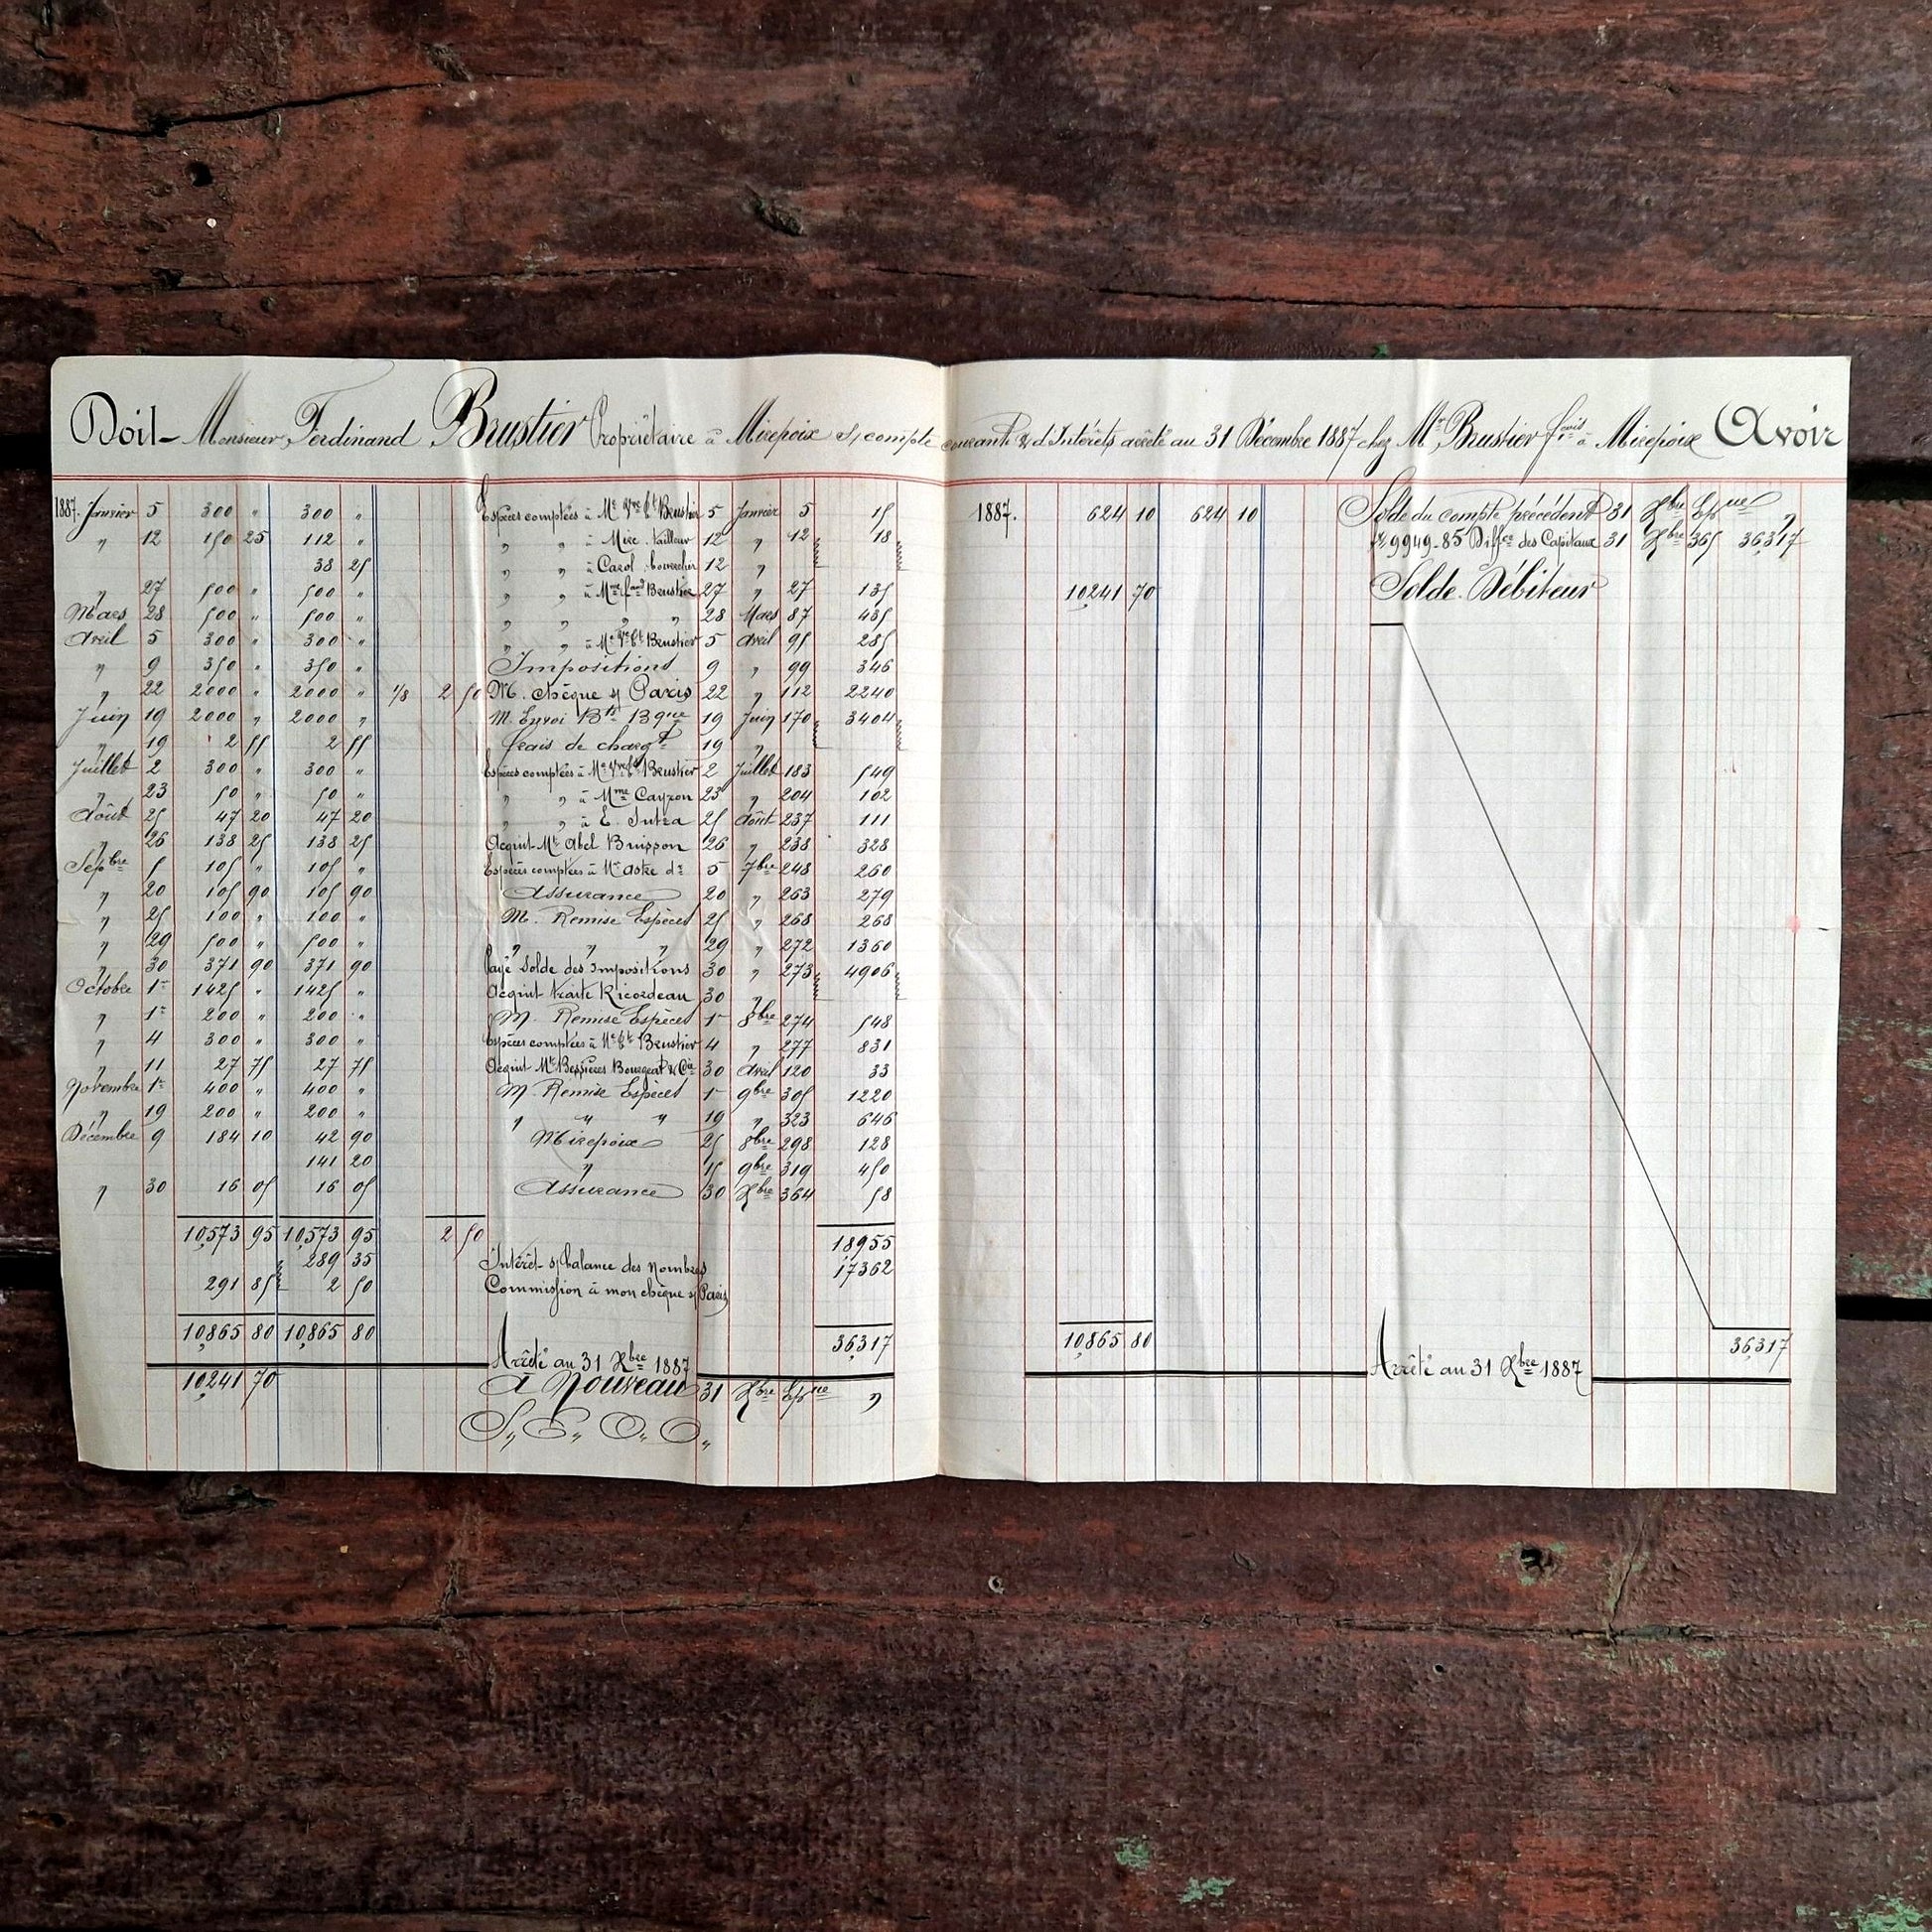 Doit Monsieur Ferdinand Brustier Propriétaire à Mirepoix s/ compte courant & d'Intérêts arrêté au 31 Décembre 1887 chez Mr Brustier fçois à Mirepoix Avoir
1887. Janvier 5 300 " 300 " Espèces comptées à Me Vve Brustier 5 Janvier 5 15
" 12 150 25 112 " " " à Mire tailleur 12 " 12 18
38 25 " " à Carol 12 "
" 27 500 " 500 " " " à Mme Brustier 27 " 27 135
Mars 28 500 " 500 " " " " " 28 Mars 87 435
Avril 5 300 " 300 " " " à Me Vve Brustier 5 Avril 95 285
" 9 350 " 350 " Impositions 9 " 99 346
" 22 2000 " 2000 " 1/8 2 50 M. chèque s/ Paris 22 " 112 2240
Juin 19 2000 " 2000 " M. Envoi Bts Bque 19 Juin 170 3404
" 19 2 55 2 55 frais de chargt 19 "
Juillet 2 300 " 300 " Espèces comptées à Me Vve Brustier 2 Juillet 183 549
" 23 50 " 50 " " " à Mme Cayron 23 " 204 102
Août 25 47 20 47 20 " " à E. Sutra 25 Août 237 111
" 26 138 25 138 25 Acquit Mt Abel Buisson 26 " 238 328
Sepbre 5 105 " 105 " Espèces comptées à Me Astre de 5 7bre 248 260
" 20 105 90 105 90 Assurance 20 " 263 279
" 25 100 " 100 " M. Remise Espèces 25 " 268 268
" 29 500 " 500 " " " " 29 " 272 1360
" 30 371 90 371 90 Payé Solde des Impositions 30 " 273 4906
Octobre 1er 1425 " 1425 " Acquit traite Ricordeau 30 "
" 1er 200 " 200 " M. Remise Espèces 1er 8bre 274 548
" 4 300 " 300 " Espèces comptées à Me Brustier 4 " 277 831
" 11 27 75 27 75 Acquit Mt Bessières Bourgeat & Cie 30 Avril 120 33
Novembre 1er 400 " 400 " M. Remise Espèces 1er 9bre 305 1220
" 19 200 " 200 " " " " 19 " 323 646
Décembre 9 184 10 42 90 Mirepoix 25 8bre 298 128
141 20 " 15 9bre 319 450
" 30 16 05 16 05 Assurance 30 Xbre 364 58
10,573 95 10,573 95 2 50 18955
289 35 Intérêt s/ balance des Nombres 17362
291 85 2 50 Commission à mon chèque s/ Paris
10,865 80 10,865 80 36,317
Arrêté au 31 Xbre 1887
10,241 70 A Nouveau 31 Xbre Epque "
S,, E,, O,, O,,
1887. 624 10 624 10 Solde du compte précédent 31 Xbre Epque "
s/ 9949-85 Diffce des Capitaux 31 Xbre 365 36,317
10,241 70 Solde Débiteur
10,865 80 36317
Arrêté au 31 Xbre 1887